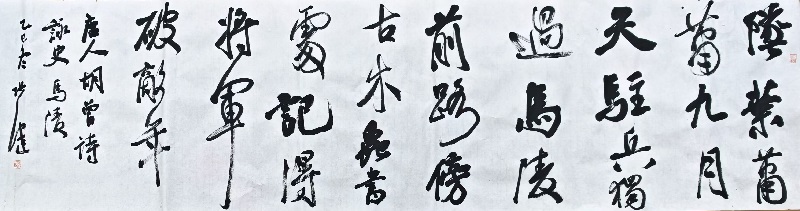 墜葉蕭
蕭九月
天駐兵獨
過馬陵
前路傍
古木蟲書
處記得
將軍
破敵年
唐人胡曾詩
詠史馬陵
乙巳冬